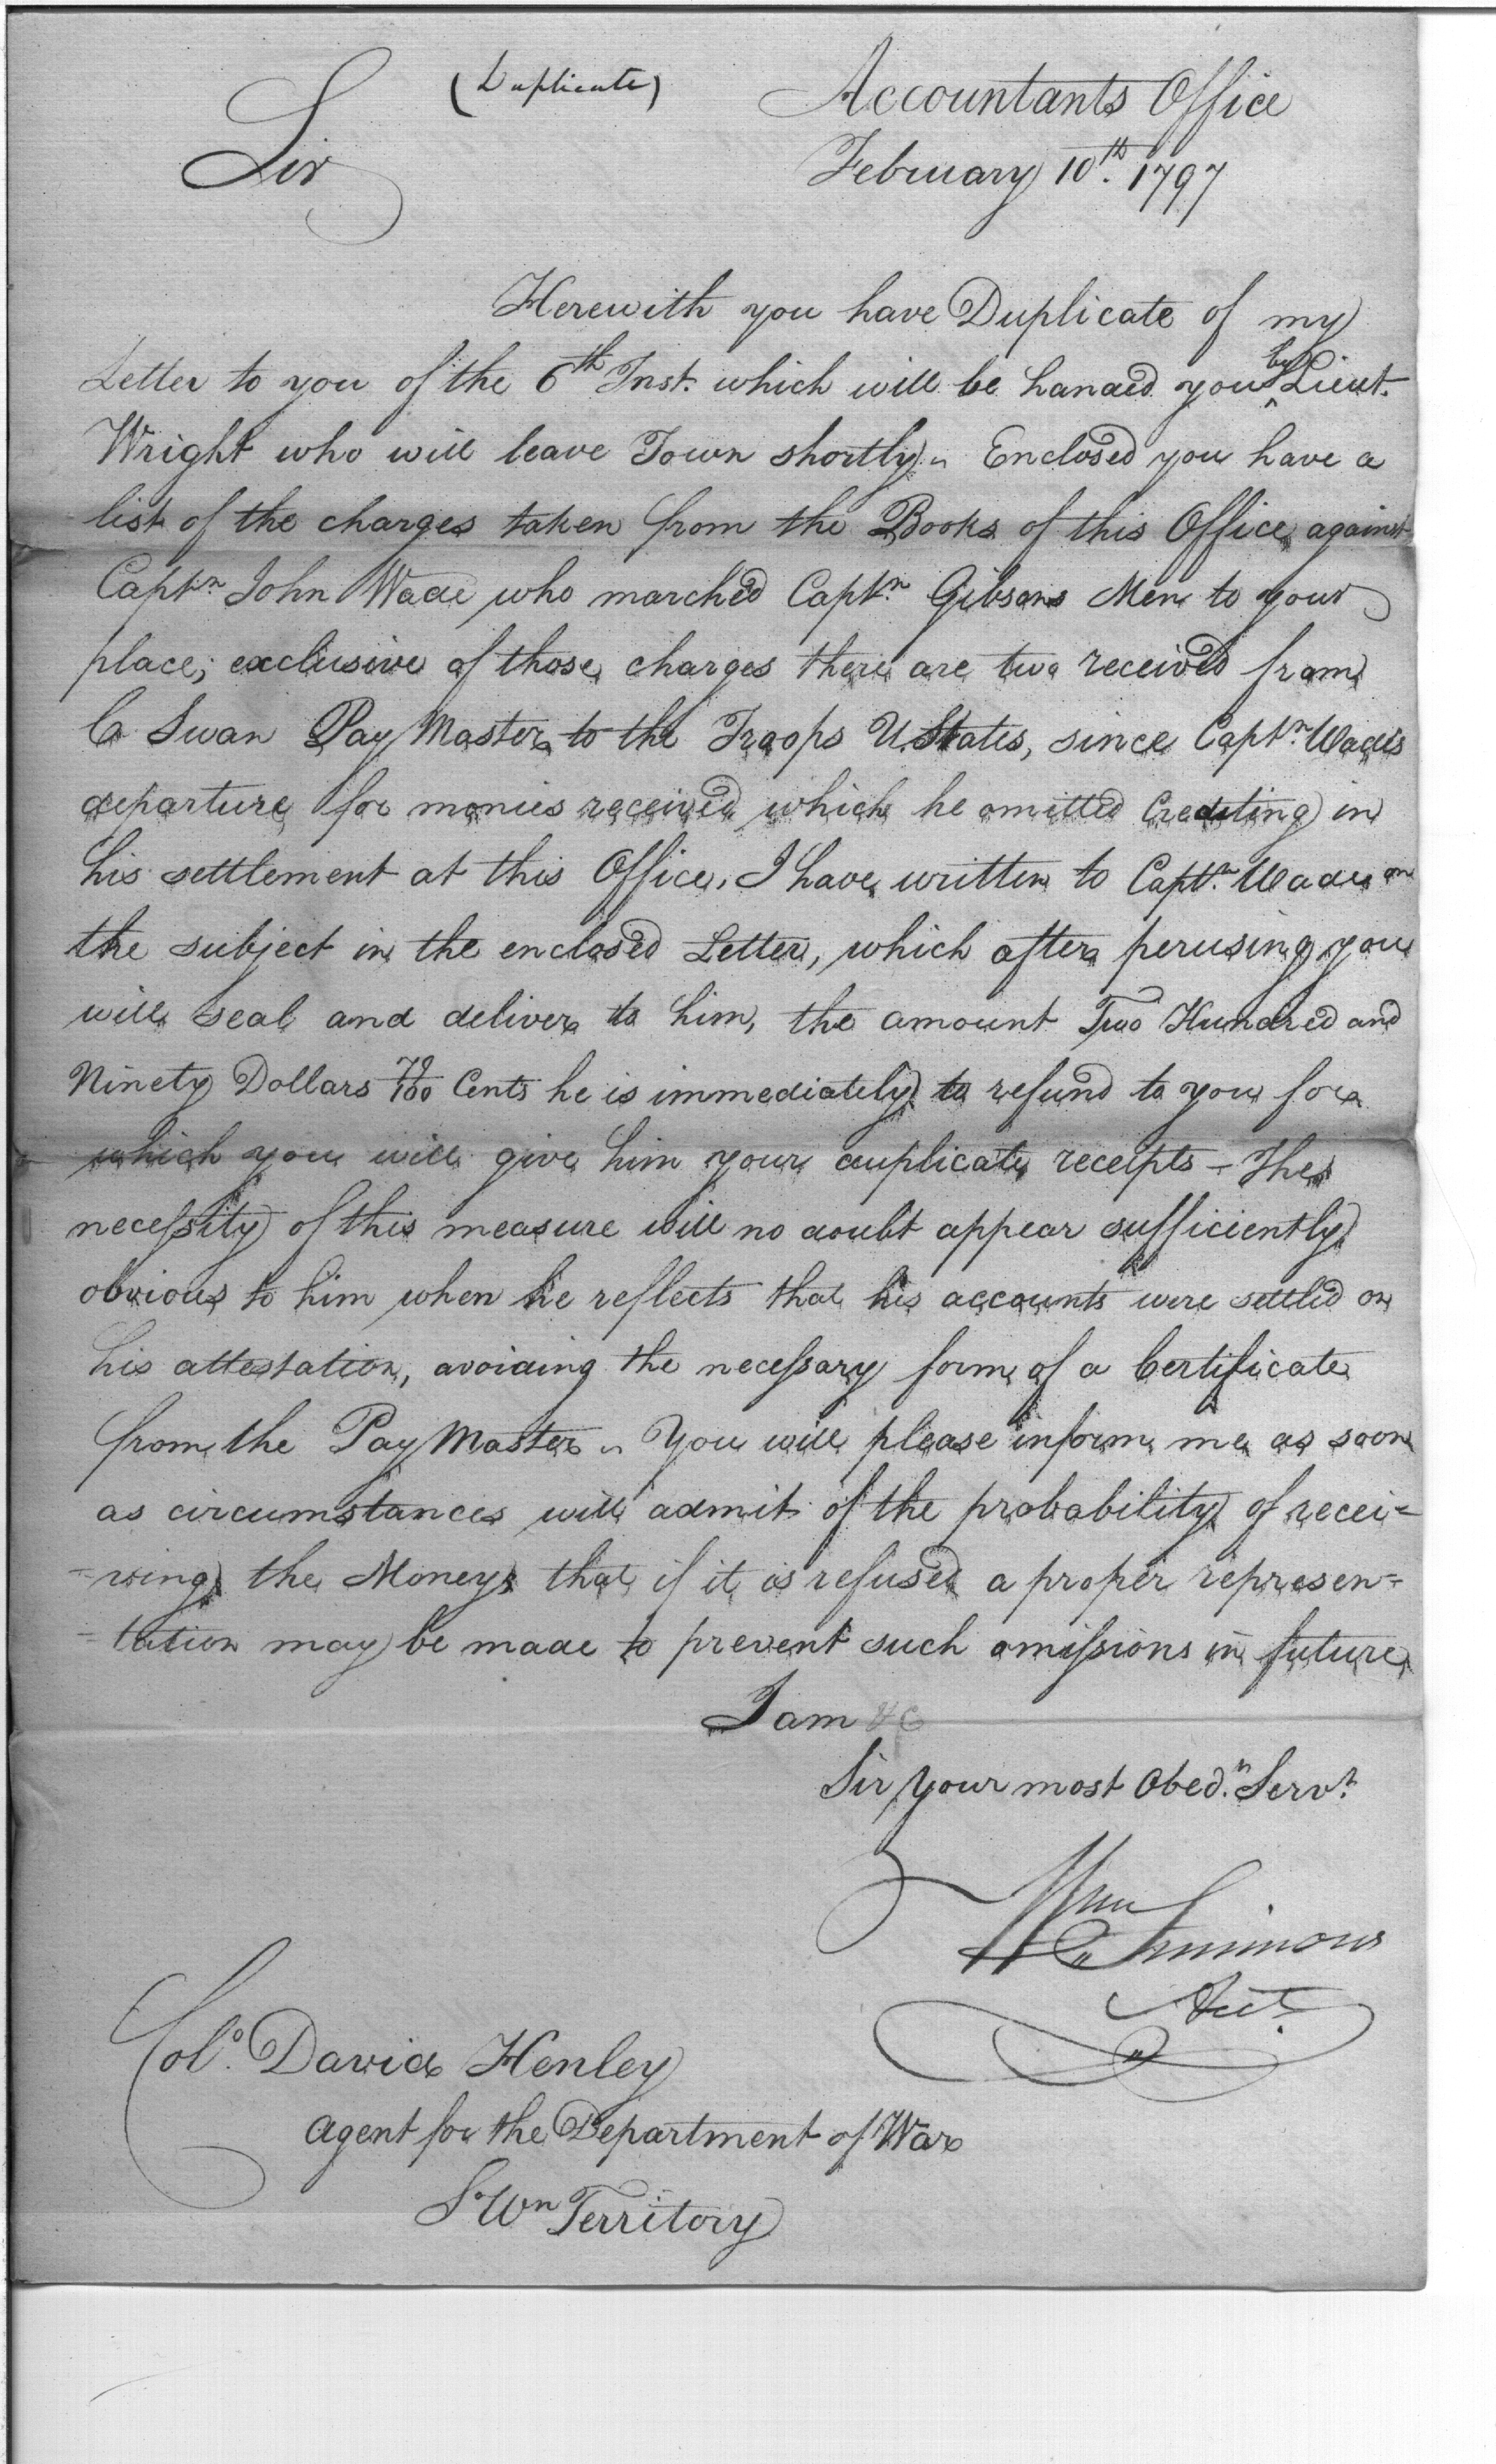 (Duplicate)
Accountants Office
Sir
February 10th. 1797
Herewith you have Duplicate of my
Letter to you of the 6th Inst. which will be handed you by Lieut.
Wright who will leave Town shortly. Enclosed you have a
list of the charges taken from the Books of this Office against
Captn. John Wade who marched Captn. Gibsons Men to your
place; exclusive of those charges there are two received from
C Swan Pay Master to the Troops U. States, since Captn. Wades
departure for monies received which he omitted Crediting in
his settlement at this Office, I have written to Captn. Wade on
the subject in the enclosed Letter, which after perusing you
will seal and deliver to him, the amount Two Hundred and
Ninety Dollars 70/100 Cents he is immediately to refund to you for
which you will give him your duplicate receipts – The
necessity of this measure will no doubt appear sufficiently
obvious to him when he reflects that his accounts were settled on
his attestation, avoiding the necessary form of a Certificate
from the Pay Master. You will please inform me as soon
as circumstances will admit of the probability of recei=
=ving the Money, that if it is refused a proper represen=
=tation may be made to prevent such omissions in future
I am &c
Sir your most Obedt. Servt.
Wm Simmons
Acct.
Colo. David Henley
Agent for the Department of War
S. Wn Territory